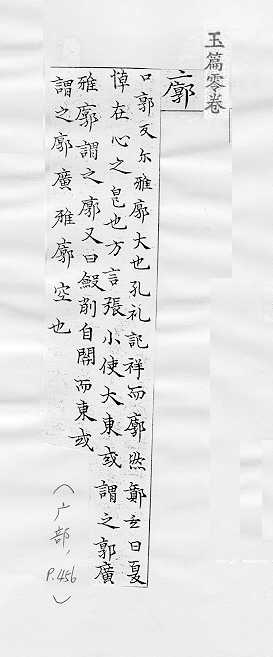 玉篇零卷
廓
口郭反尔雅廓大也孔礼記祥而廓然鄭玄曰憂
悼在心之皃也方言張小使大東或謂之郭廣
雅廓謂之廓又曰鮫削自關而東或
謂之廓廣雅廓空也
(广部,
P.456)